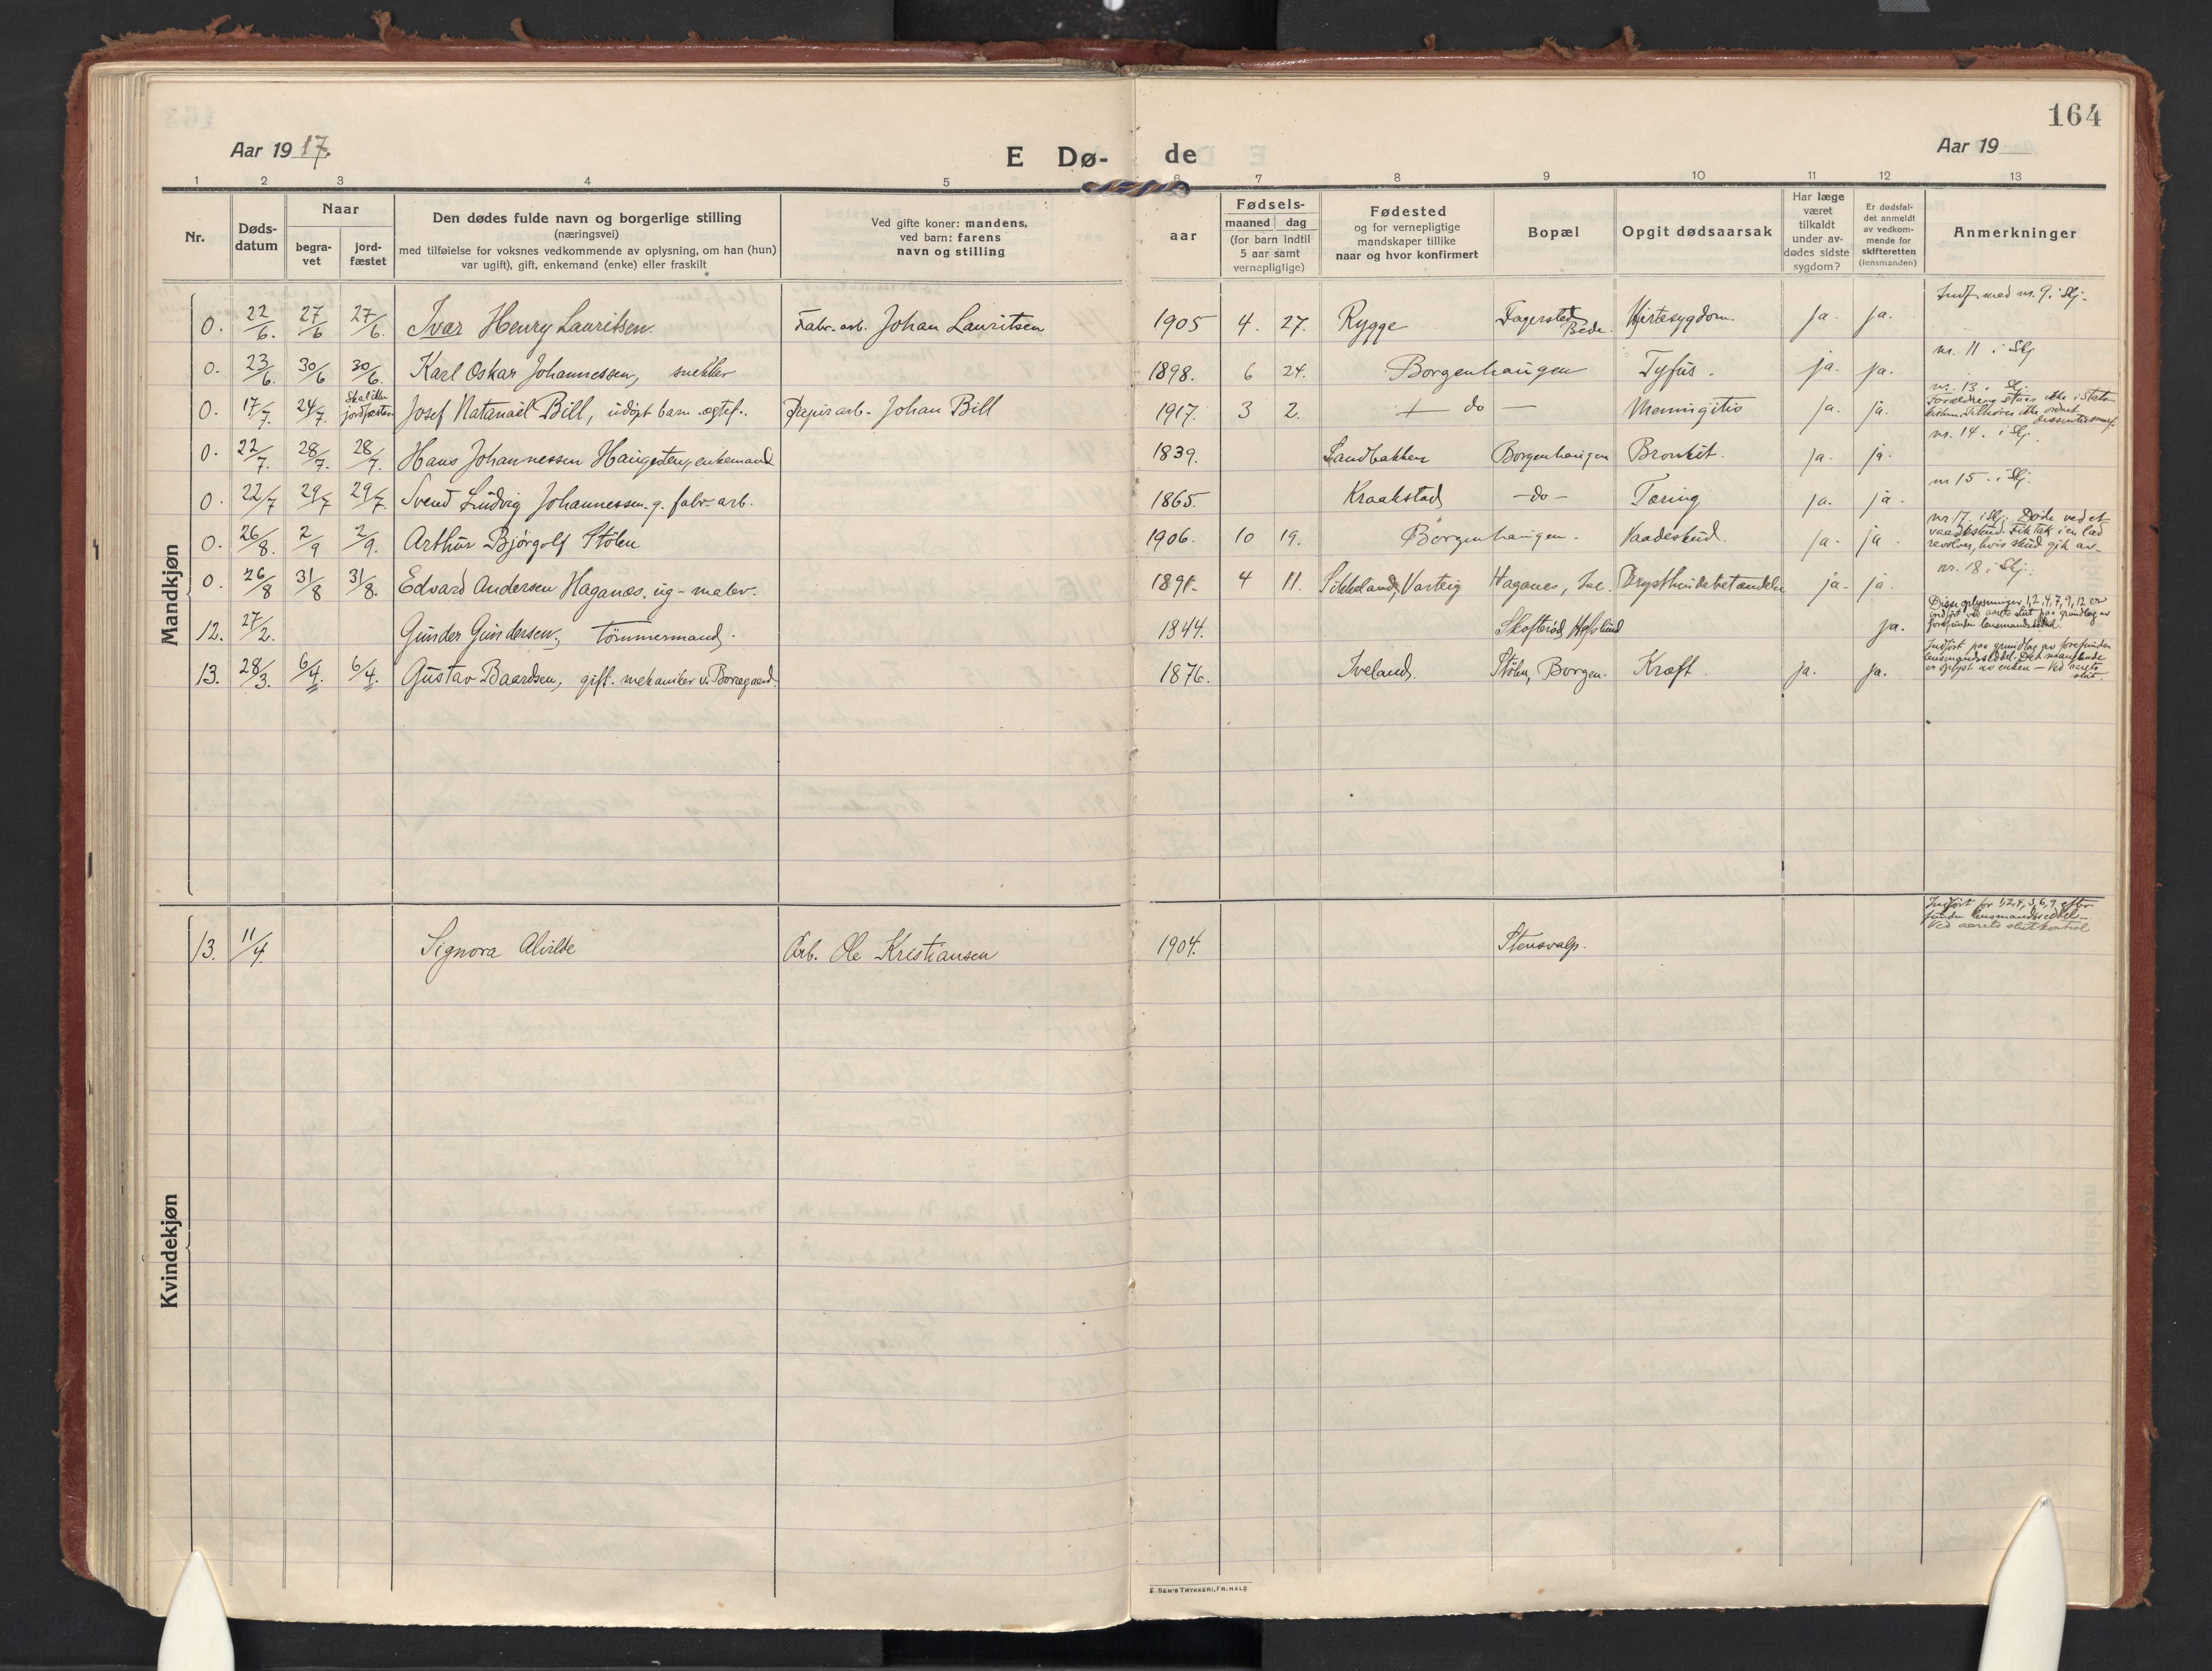 164
Aar 1917.
E Dø- de
Aar 19
1 2 3 4 5 6 7 8 9 10 11 12 13
Nr.
Døds-
datum
Naar
begra-
vet
jord-
fæstet
Den dødes fulde navn og borgerlige stilling
(næringsvei)
med tilføielse for voksnes vedkommende av oplysning, om han (hun)
var ugift), gift, enkemand (enke) eller fraskilt
Ved gifte koner: mandens,
ved barn: farens
navn og stilling
aar
Fødsels-
maaned dag
(for barn indtil
5 aar samt
vernepligtige)
Fødested
og for vernepligtige
mandskaper tillike
naar og hvor konfirmert
Bopæl
Opgit dødsaarsak
Har læge
været
tilkaldt
under av-
dødes sidste
sygdom?
Er dødsfal-
det anmeldt
av vedkom-
mende for
skifteretten
(lensmanden)
Anmerkninger
Mandkjøn
Indf. med nr. 9. i Skj.
0. 22/6. 27/6 27/6. Ivar Henry Lauritsen. Fabr. arb. Johan Lauritsen 1905 4. 27. Rygge Fagersted Hjertesygdom. ja. ja.
nr. 11 i Skj
0. 23/6. 30/6 30/6. Karl Oskar Johannessen, snekker 1898. 6 24. Borgenhaugen Tyfus. ja. ja.
nr. 13. i Skj.
Skal ikke
jordfæstes
0. 17/7. 24/7. Josef Natanael Bill, udøpt barn egtef. Papirarb. Johan Bill 1917. 3 2. do Meningitis ja. ja.
nr. 14. i Skj.
0. 22/7. 28/7. 28/7. Hans Johannessen Haugesten, enkemand 1839. Sandbakken Borgenhaugen Bronkit. ja. ja.
nr 15. i Skj.
0. 22/7 29/7 29/7. Svend Ludvig Johannessen. g. fabr. arb. 1865. Kraakstad -do- Tæring ja. ja.
nr. 17. i Skj. Døde ved et
vaadeskud. Fik tak i en lad
revolver, hvis skud gik av-
0. 26/8. 2/9 2/9. Arthur Bjørgolf Stølen 1906. 10 19. Borgenhaugen. Vaadeskud. ja. ja
nr. 18 i Skj.
0. 26/8 31/8 31/8. Edvard Andersen Haganæs. ug - maler. 1891. 4 11. Varteig Haganes, Brysthindebetændelse ja. ja.
Disse oplysninger, 1, 2, 4, 7, 9, 12 er
indført ved aarets slut paa grundlag av
lensmandsseddel.
12. 27/2. Gunder Gundersen, Tømmermand. 1844. Skofterød, Hafslund ja.
Indført paa grundlag av
lensmandsseddel. Det manglende
er oplyst av enken - Ved aarets
slut.
13. 28/3. 6/4. 6/4. Gustav Baardsen, gift. mekaniker v. Borregaard. 1876. Iveland. Stølen, Borgen. Kræft. ja. ja.
Kvindekjøn
Indført for 1, 2, 4, 5, 6, 9 efter
lensmandsseddel -
Ved aarets slutkontrol
13. 11/4. Signora Alvilde Arb. Ole Kristiansen 1904. Stensvalp.
E. SEM'S TRYKKERI, FR.HALD